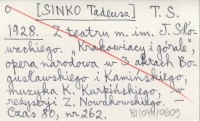 [SINKO Tadeusz] T. S.
1928. Z teatru m. im. J. Sło-
wackiego. "Krakowiacy i górale",
opera narodowa w 3 aktach Bo-
gusławskiego i Kamińskiego,
muzyka K. Kurpińskiego, w
reżyserji Z. Nowakowskiego. –
Czas 80, nr 262.